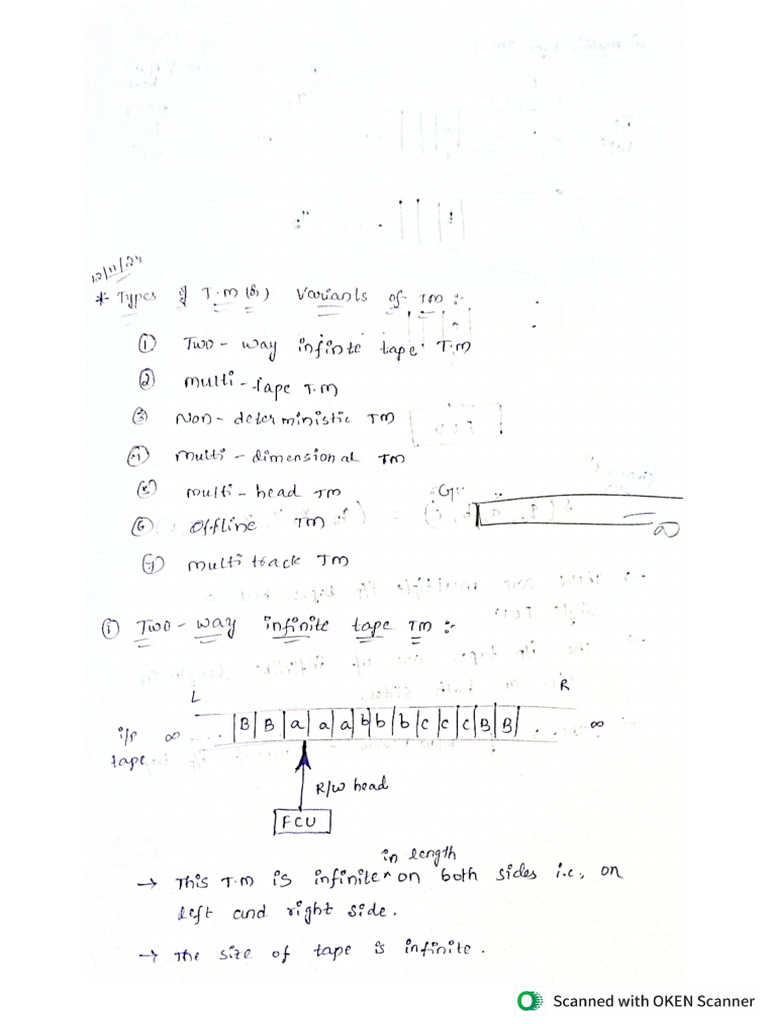 12/11/24
* Types of T.M (or) Variants of TM :-
① Two-way infinite tape T.M
② Multi-tape T.M
③ Non-deterministic TM
④ Multi-dimensional TM
⑤ multi-head TM
⑥ Offline TM
⑦ multi track TM
∞
① Two-way infinite tape TM :-
L R
i/p tape ∞ .... |B|B|a|a|a|b|b|b|c|c|c|B|B| . . . . ∞
R/w head
FCU
→ This T.M is infinite ^ in length on both sides i.e., on
left and right side.
→ The size of tape is infinite.
Scanned with OKEN Scanner